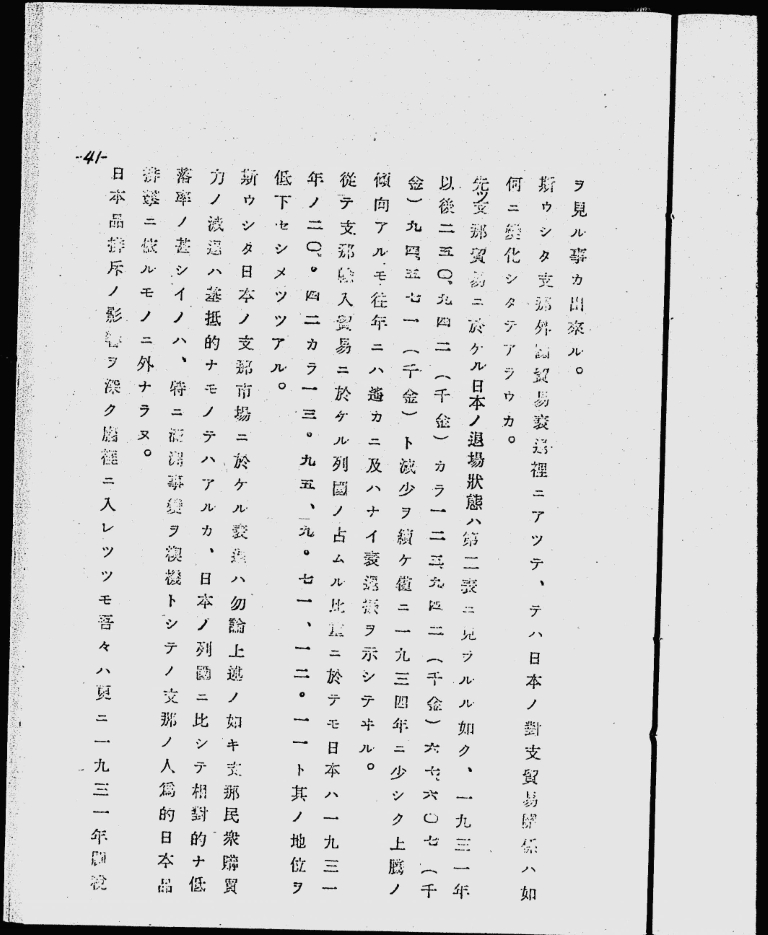 ヲ見ル事カ出來ル。
斯ウシタ支那外國貿易衰退裡ニアツテ、テハ日本ノ對支貿易關係ハ如
何ニ變化シタテアラウカ。
先ツ支那貿易ニ於ケル日本ノ退場狀態ハ第二表ニ見ラルル如ク、一九三一年
以後二五〇、九四二（千金）カラ一二三、九四二（千金）六七、六〇七（千
金）九四、五七一（千金）ト減少ヲ續ケ僅ニ一九三四年ニ少シク上騰ノ
傾向アルモ往年ニハ遙カニ及ハナイ衰退振ヲ示シテヰル。
從テ支那輸入貿易ニ於ケル列國ノ占ムル比重ニ於テモ日本ハ一九三一
年ノ二〇。四二カラ一三。九五、九。七一、一二。一一ト其ノ地位ヲ
低下セシメツツアル。
斯ウシタ日本ノ支那市場ニ於ケル衰退ハ勿論上述ノ如キ支那民衆購買
力ノ減退ハ基抵的ナモノテハアルカ、日本ノ列國ニ比シテ相對的ナ低
落率ノ甚シイノハ、特ニ滿洲事變ヲ楔機トシテノ支那ノ人爲的日本品
排撃ニ依ルモノニ外ナラヌ。
日本品排斥ノ影響ヲ深ク腦裡ニ入レツツモ吾々ハ更ニ一九三一年關稅
-41-